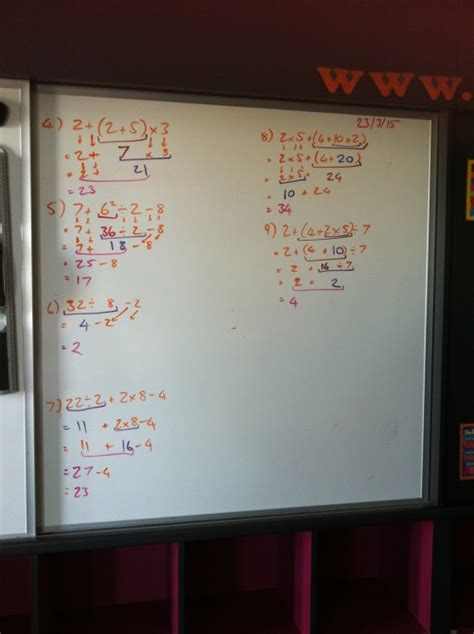 www.
23/3/15
4) 2+(2+5)×3
= 2+ 7 ×3
= 2+ 21
= 23
5) 7+6²÷2-8
= 7+ 36÷2-8
= 7+ 18-8
= 25-8
= 17
6) 32÷8-2
= 4-2
= 2
7) 22÷2+2×8-4
= 11 + 2×8-4
= 11 + 16-4
= 27-4
= 23
8) 2×5+(4+10×2)
= 2×5+(4+20)
= 2×5+ 24
= 10 + 24
= 34
9) 2+(4+2×5)÷7
= 2+(4+10)÷7
= 2 + 14÷7
= 2 + 2
= 4